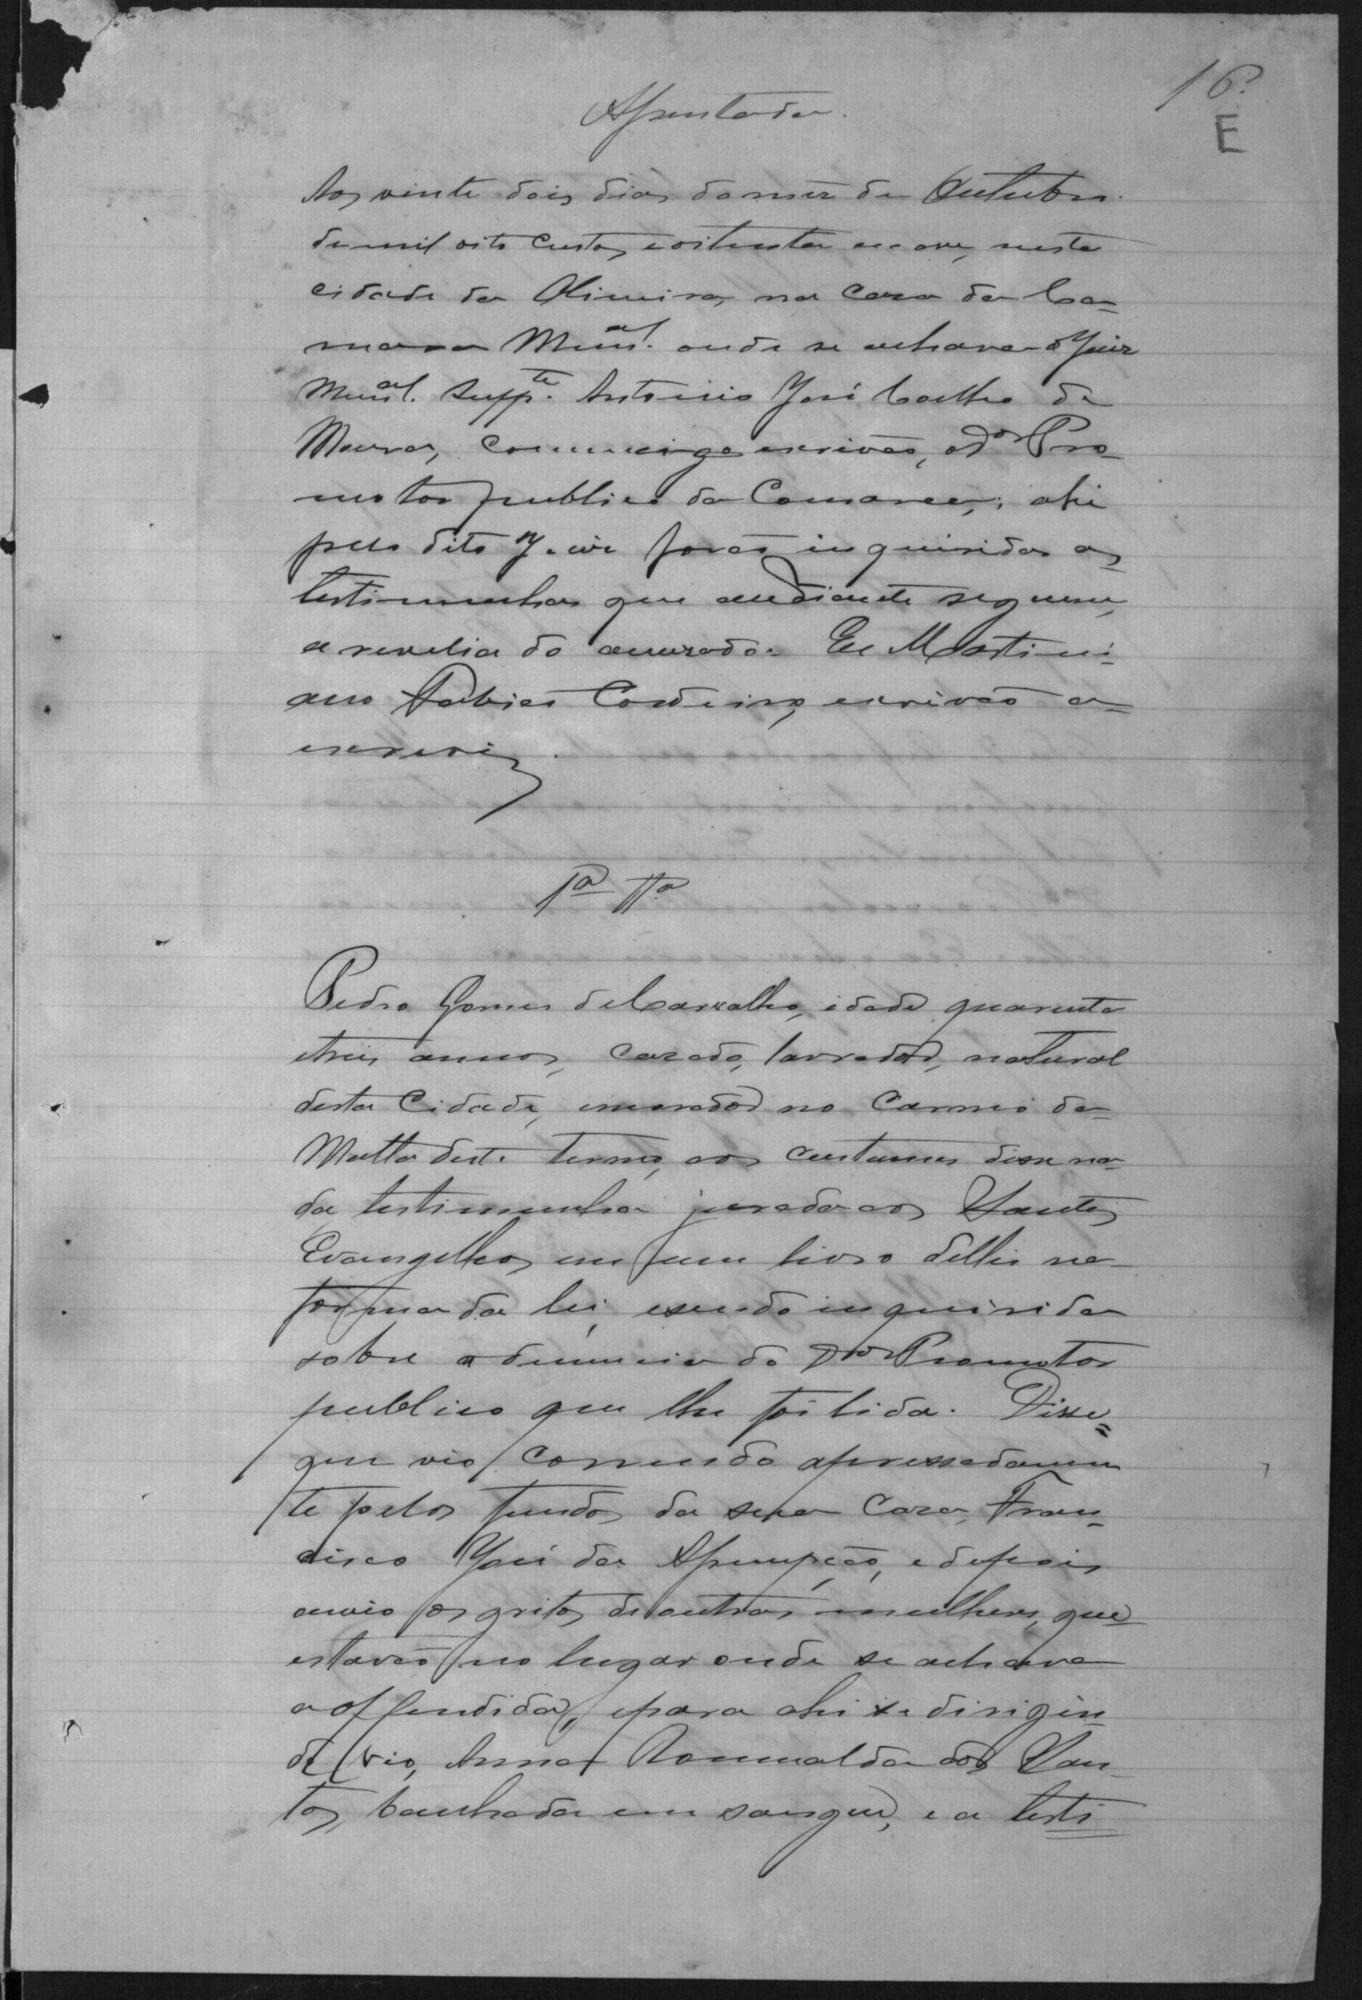 16
E
Assentada.
Aos vinte dois dias do mez de Outubro
de mil oito centos e oitenta e nove, nesta
cidade da Oliveira, na casa da Ca-
mara Munal. onde se achava o Juiz
Munal. Suppte. Antonio José Coelho de
Moura, commigo escrivão, o Dor Pro-
motor publico da Comarca, ahi
pelo dito Juiz forão inquiridas as
testimunhas que ao diante seguem,
a revelia do accusado. Eu Martini-
ano Cordeiro, escrivão o
escrevi.
1a Ta
Pedro Gomes de Carvalho, idade quarenta
e tres annos, cazado, lavrador, natural
desta Cidade, morador no Carmo da
Matta deste termo, aos custumes disse na-
da, testimunha jurada aos Santos
Evangelhos em um livro delles na
forma da lei, e sendo inquirida
sobre a denuncia do Dor Promotor
publico que lhe foi lida. Disse
que vio correndo apressadamen
te pelos fundos da sua caza, Fran-
cisco José da Assumpção, e depois
ouvio os gritos de outras mulheres, que
estavão no lugar onde se achava
a offendida, e para ahi se dirigin
do vio, Anna Romualda dos San-
tos, banhada em sangue, e a testi